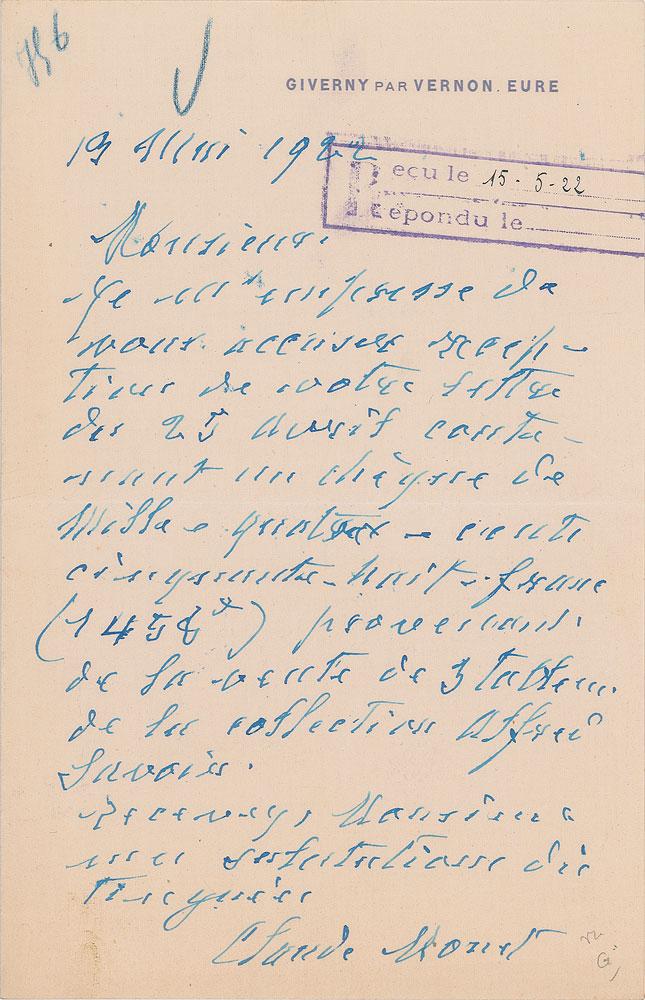 GIVERNY PAR VERNON. EURE
13 Mai 1922
Reçu le 15-5-22
Répondu le
Monsieur.
Je m'empresse de
vous accuser récep-
tion de votre lettre
du 25 avril conte-
nant un chèque de
Mille-quatre-cent
cinquante-huit-franc
(1458 f) provenant
de la vente de 3 tableau
de la collection Alfred
Savoir.
Recevez, Monsieur
mes salutations dis
tinguées
Claude Monet